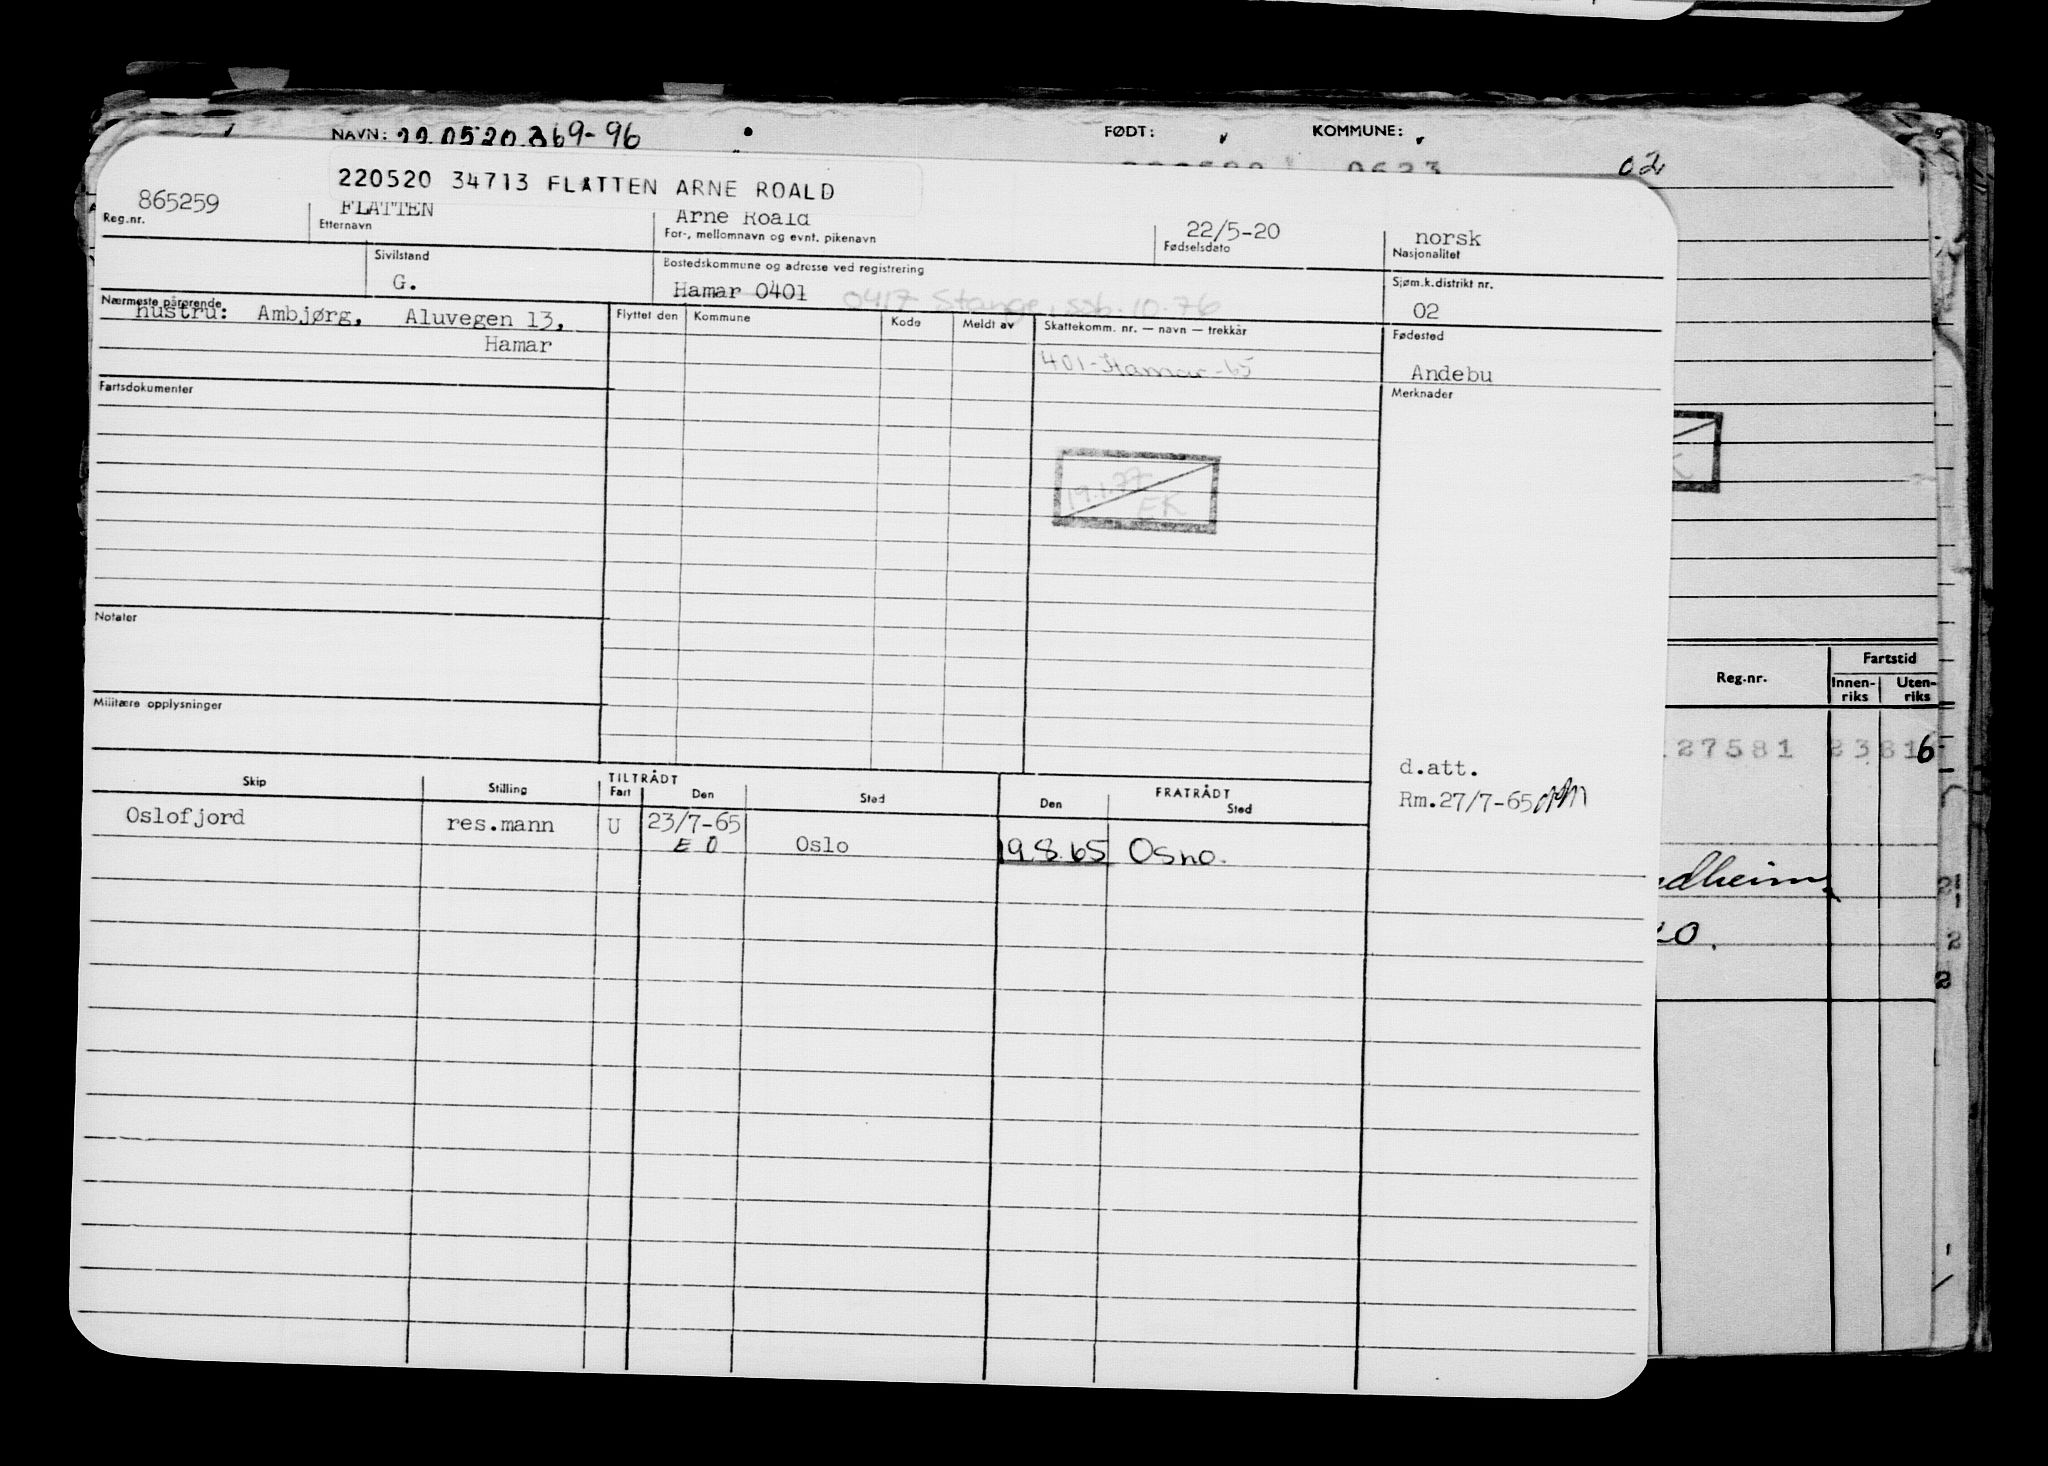 NAVN: 22.05.20.369-96 FØDT: KOMMUNE:
0623
02
220520 34713 FLATTEN ARNE ROALD
865259 FLATTEN Arne Roald 22/5-20 norsk
Reg.nr. Etternavn For-, mellomnavn og evnt. pikenavn Fødselsdato Nasjonalitet
Sivilstand Bostedskommune og adresse ved registrering Sjøm.k.distrikt nr.
G. Hamar 0401 0417 Stange, ssb. 10.76 02
Nærmeste pårørende Flyttet den Kommune Kode Meldt av Skattekomm. nr. — navn — trekkår Fødested
hustru: Ambjørg, Aluvegen 13,
Hamar
401-Hamar-65 Andebu
Fartsdokumenter Merknader
19.1.77
EK
Notater
Militære opplysninger
Reg.nr. Fartstid
Innen-riks Uten-riks
27581 23816
d.att.
Rm.27/7-65
Skip Stilling TILTRÅDT FRATRÅDT
Fart Den Sted Den Sted
Oslofjord res.mann U 23/7-65
E Ö Oslo 19.8.65 Osno.